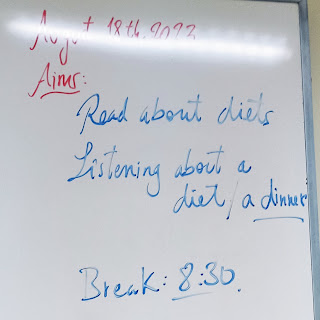 August 18th. 2023
Aims:
Read about diets
Listening about a
diet / a dinner
Break: 8:30.